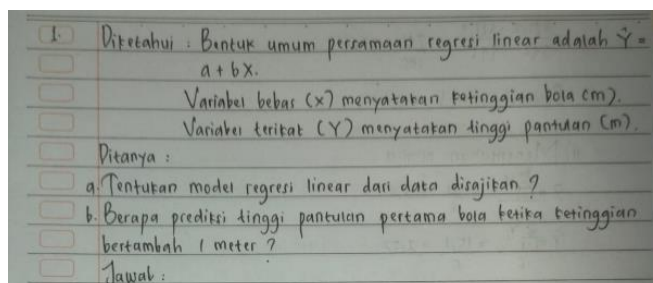 1. Diketahui : Bentuk umum persamaan regresi linear adalah Ŷ =
a + bX.
Variabel bebas (X) menyatakan ketinggian bola (m).
Variabel terikat (Y) menyatakan tinggi pantulan (m).
Ditanya :
a. Tentukan model regresi linear dari data disajikan ?
b. Berapa prediksi tinggi pantulan pertama bola ketika ketinggian
bertambah 1 meter ?
Jawab :